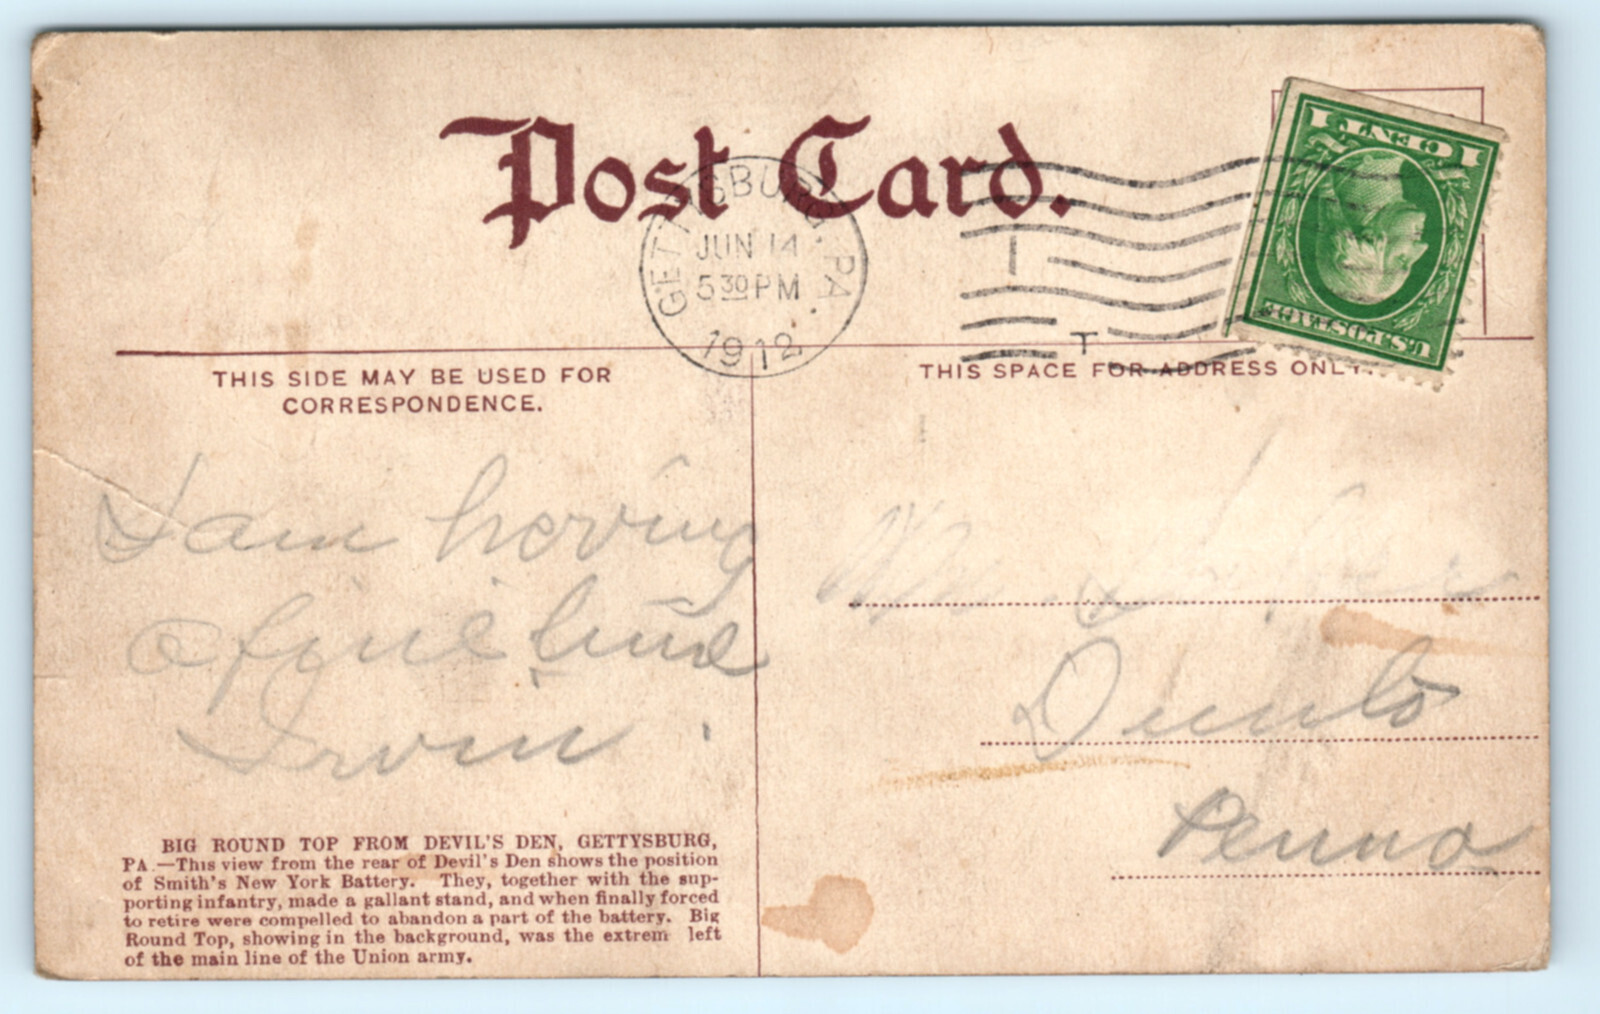 Post Card.
GETTYSBURG, PA.
JUN 14
5 30 PM
1912
1 CENT 1
U.S. POSTAGE
THIS SIDE MAY BE USED FOR
CORRESPONDENCE.
THIS SPACE FOR ADDRESS ONLY.
I am having
a fine time
Irvin
Dunlo
Penna
BIG ROUND TOP FROM DEVIL'S DEN, GETTYSBURG,
PA.—This view from the rear of Devil's Den shows the position
of Smith's New York Battery. They, together with the sup-
porting infantry, made a gallant stand, and when finally forced
to retire were compelled to abandon a part of the battery. Big
Round Top, showing in the background, was the extrem left
of the main line of the Union army.